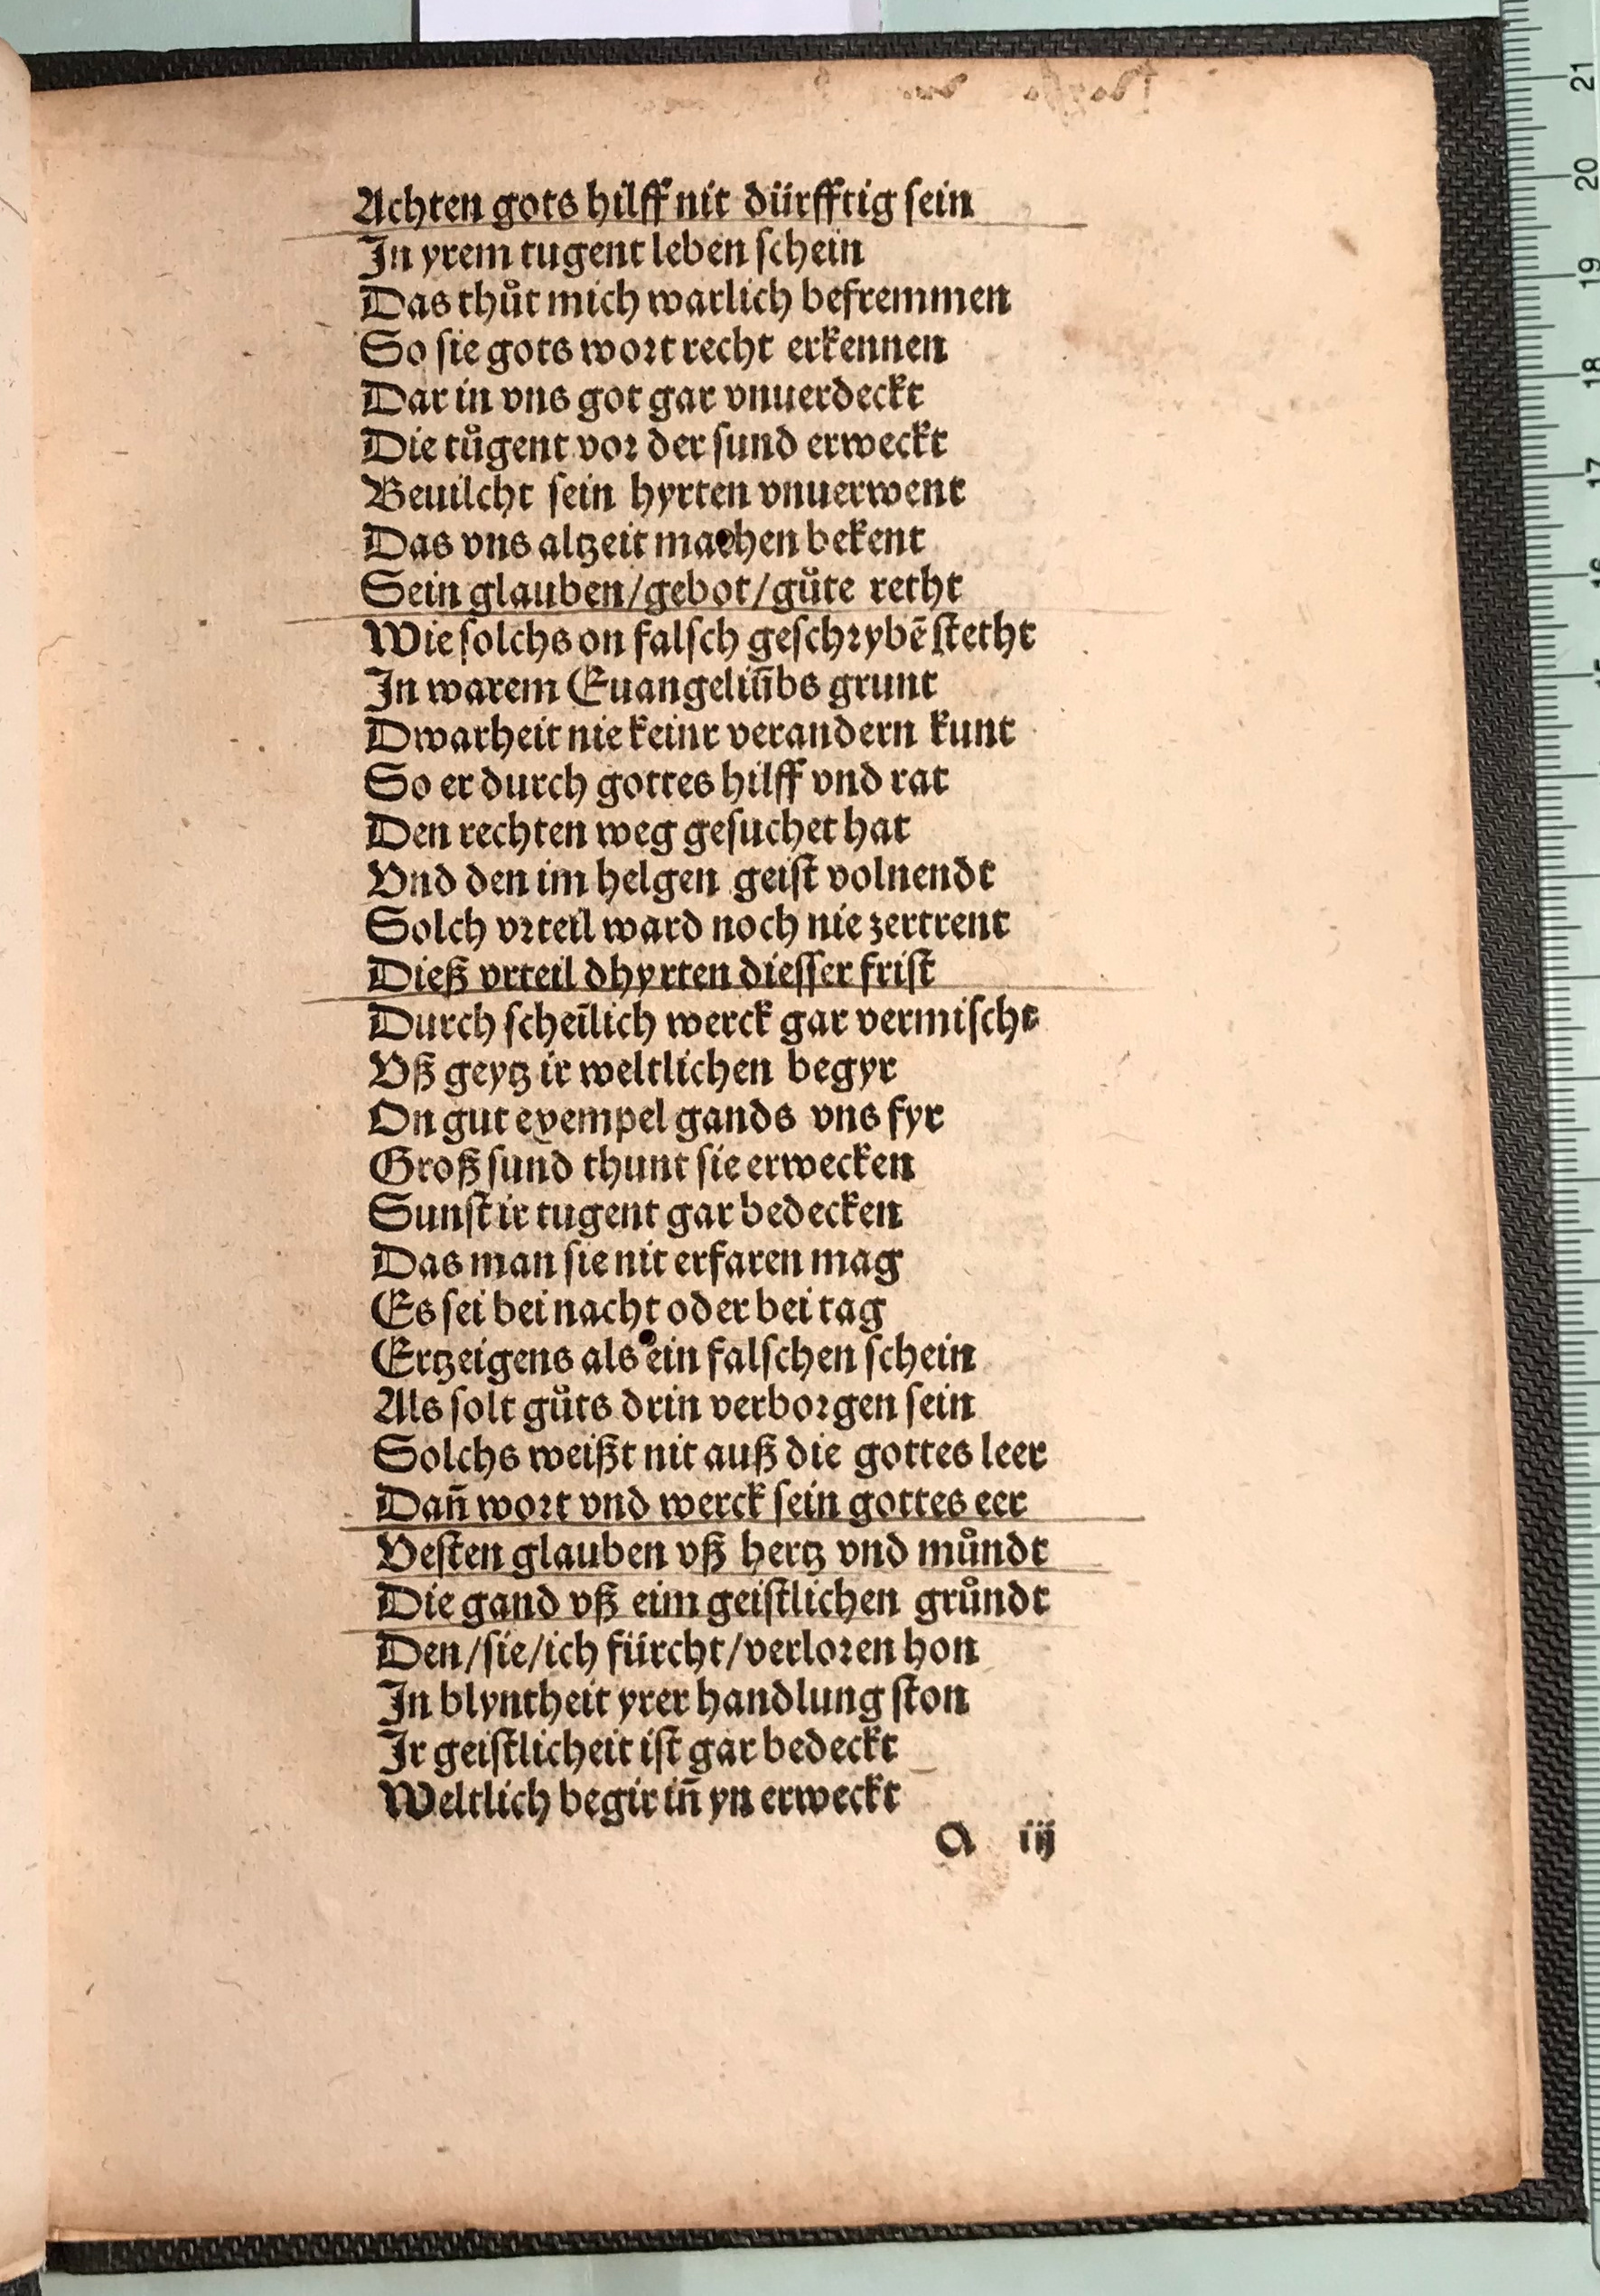 Achten gots hilff nit dürfftig sein
In yrem tugent leben schein
Das thůt mich warlich befremmen
So sie gots wort recht erkennen
Dar in vns got gar vnuerdeckt
Die tůgent vor der sund erweckt
Beuilcht sein hyrten vnuerwent
Das vns altzeit machen bekent
Sein glauben/gebot/gůte retht
Wie solchs on falsch geschrybē stetht
In warem Euangeliūbs grunt
Dwarheit nie keinr verandern kunt
So er durch gottes hilff vnd rat
Den rechten weg gesuchet hat
Vnd den im helgen geist volnendt
Solch vrteil ward noch nie zertrent
Dieß vrteil dhyrten diesser frist
Durch scheīlich werck gar vermischt
Vß geytz ir weltlichen begyr
On gut exempel gands vns fyr
Groß sund thunt sie erwecken
Sunst ir tugent gar bedecken
Das man sie nit erfaren mag
Es sei bei nacht oder bei tag
Ertzeigens als ein falschen schein
Als solt gůts drin verborgen sein
Solchs weißt nit auß die gottes leer
Dañ wort vnd werck sein gottes eer
Vesten glauben vß hertz vnd můndt
Die gand vß eim geistlichen grůndt
Den/sie/ich fürcht/verloren hon
In blyntheit yrer handlung ston
Ir geistlicheit ist gar bedeckt
Weltlich begir iñ yn erweckt
a iij
21
20
19
18
17
16
15